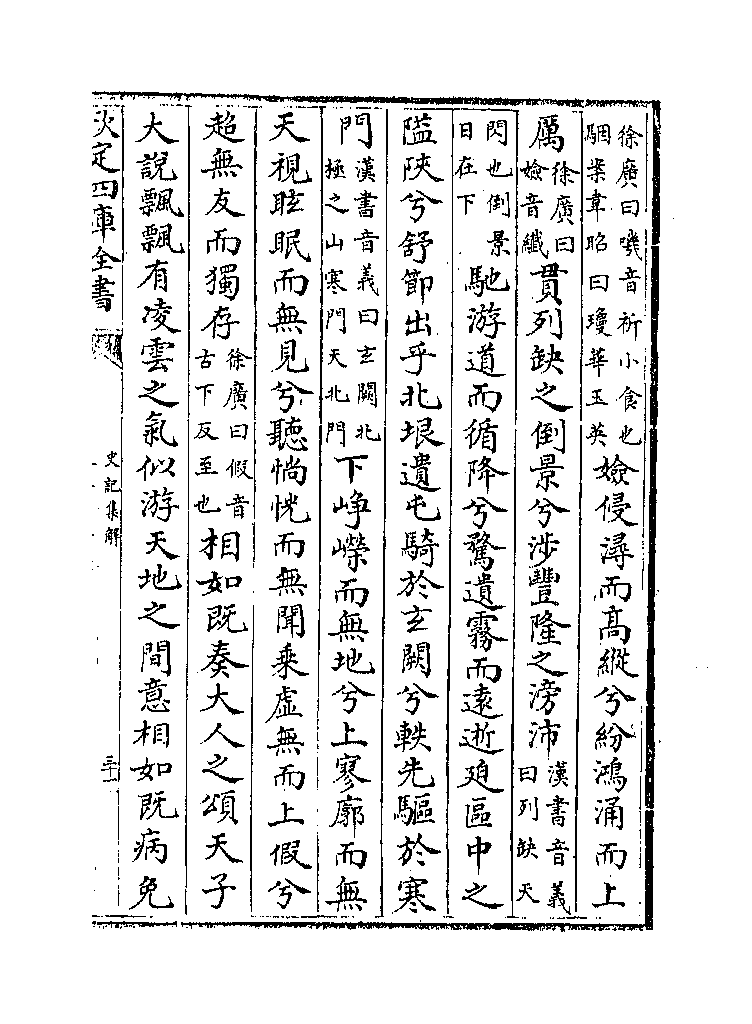 徐廣曰嘰音祈小食也駰案韋昭曰瓊華玉英嬐侵潯而高縱兮紛鴻涌而上
厲徐廣曰嬐音纖貫列缺之倒景兮涉豐隆之滂沛漢書音義曰列缺天
閃也倒景日在下馳游道而循降兮騖遺霧而遠逝廹區中之
隘陜兮舒節出乎北垠遺屯騎於玄闕兮軼先驅於寒
門漢書音義曰玄闕北極之山寒門天北門下崢嶸而無地兮上寥廓而無
天視眩眠而無見兮聽惝恍而無聞乗虛無而上假兮
超無友而獨存徐廣曰假音古下反至也相如既奏大人之頌天子
大說飄飄有凌雲之氣似游天地之間意相如既病免
欽定四庫全書
史記集解